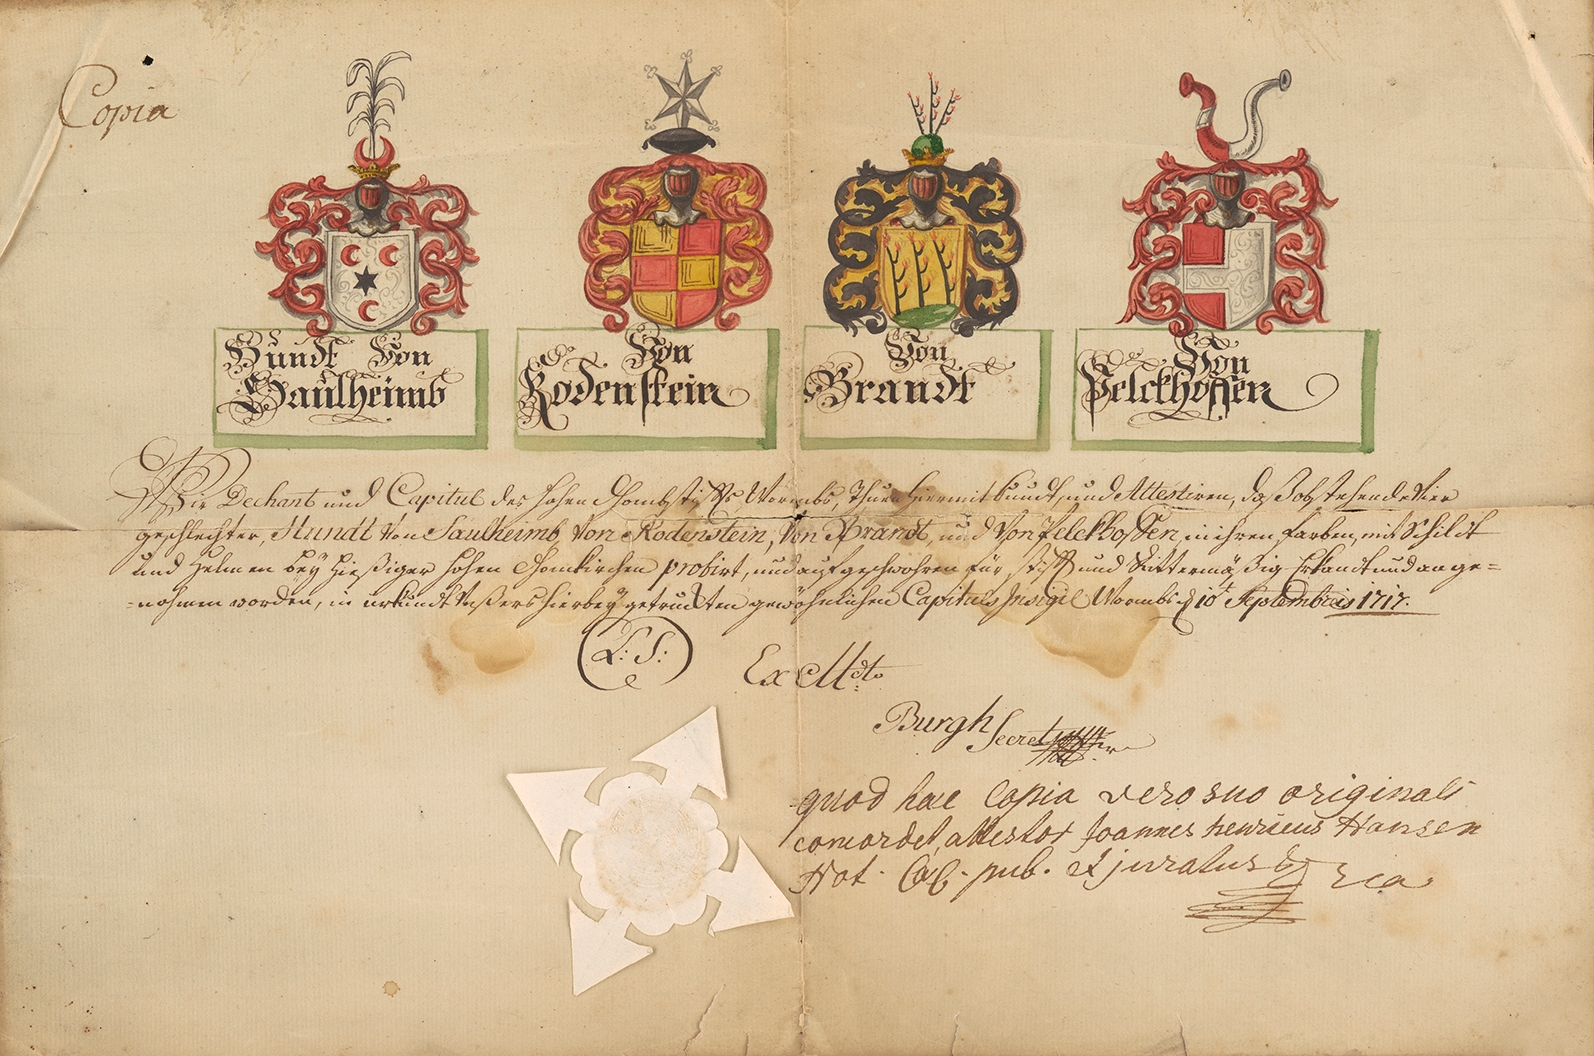 Copia
Hundt Von
Saulheimb
Von
Rodenstein
Von
Brandt
Von
Pelckhoffen
Wir Dechant und Capitul des hohen Thombstiffts Wormbs, Thun hiermit kundt, und Attestiren, daß obstehende vier
geschlechter, Hundt Von Saulheimb, Von Rodenstein, Von Brandt, und Von Pelckhoffen, in ihren farben, mit Schildt
und helmen bey hießiger hohen Thomkirchen probirt, und aufgeschwohren für, stifft und Rittermäßig Erkandt und ange=
=nohmen worden, in urkundt unßers hierbey getruckten gewöhnlichen Capituls Insigil Wormbs d 10t Septembris 1717.
L: S:
Ex Mdto
Burgh Secret
quod haec Copia vero suo originali
concordet, attestor Joannes henricus Hansen
Not. Caes. pub. et juratus